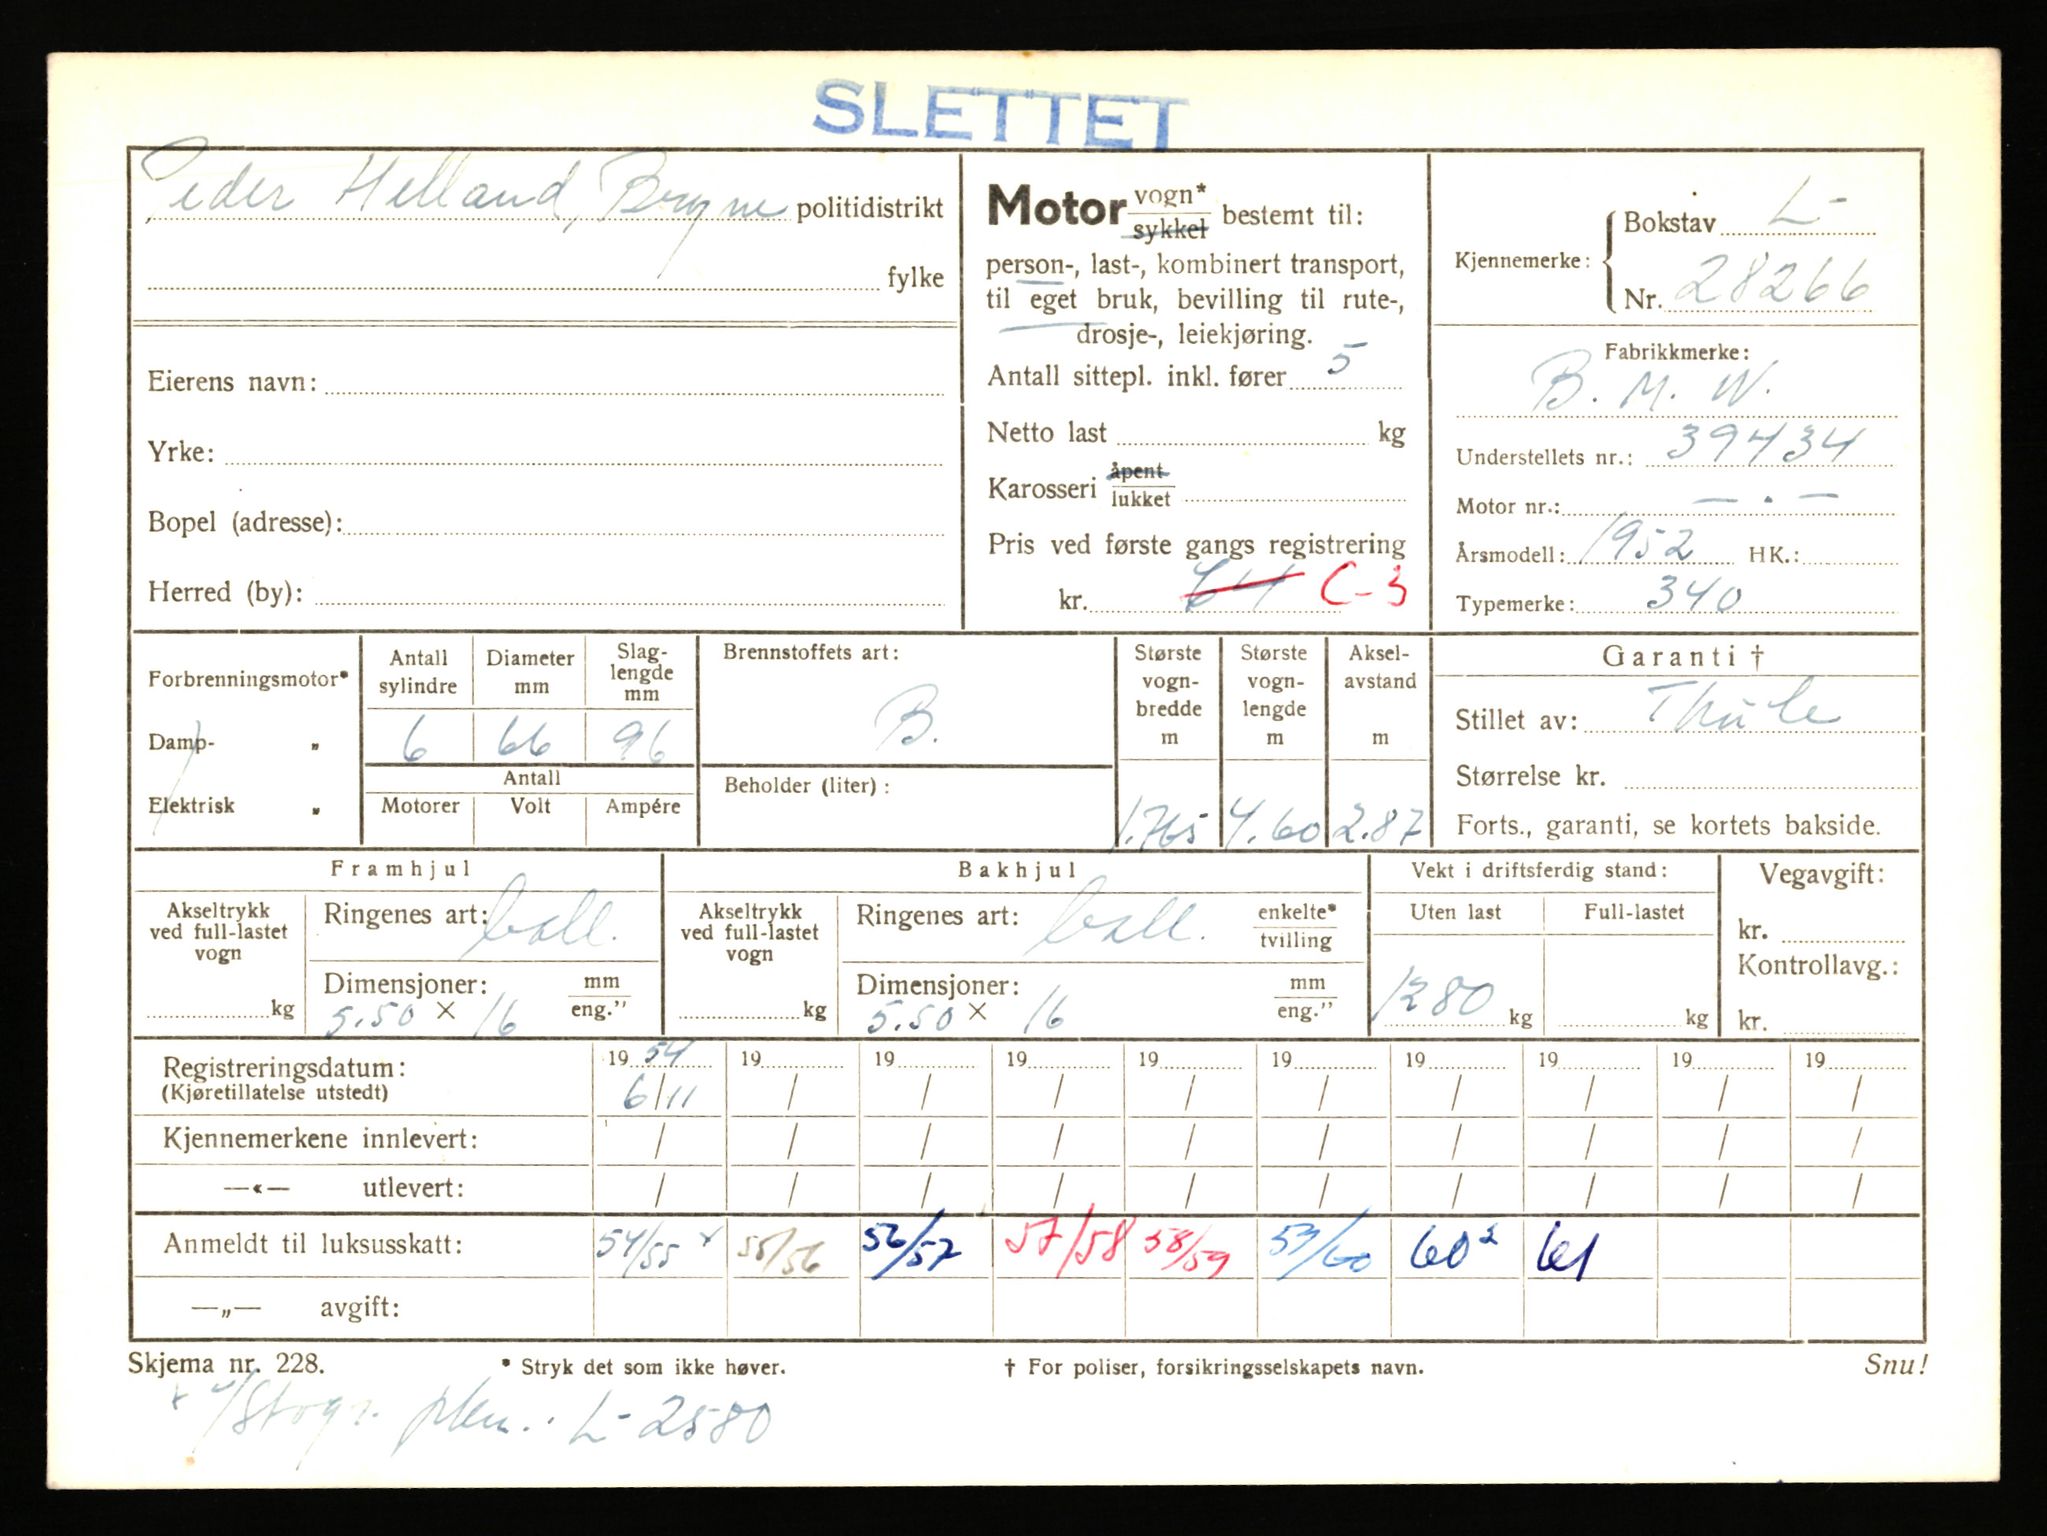 SLETTET
Peder Helland, Bryne politidistrikt
fylke
Eierens navn:
Yrke:
Bopel (adresse):
Herred (by):
Motor vogn* sykkel bestemt til:
person-, last-, kombinert transport,
til eget bruk, bevilling til rute-,
drosje-, leiekjøring.
Antall sittepl. inkl. fører 5
Netto last kg
Karosseri åpent lukket
Pris ved første gangs registrering
kr. C-3
Kjennemerke: Bokstav L-
Nr. 28266
Fabrikkmerke:
B. M. W.
Understellets nr.: 39434
Motor nr.: — . —
Årsmodell: 1952 HK.:
Typemerke: 340
Forbrenningsmotor*
Damp- „
Elektrisk „
Antall sylindre Diameter mm Slag-lengde mm
6 66 96
Antall
Motorer Volt Ampére
Brennstoffets art:
B.
Beholder (liter):
Største vogn-bredde m
1.765
Største vogn-lengde m
4.60
Aksel-avstand m
2.87
Garanti †
Stillet av: Thule
Størrelse kr.
Forts., garanti, se kortets bakside.
Framhjul
Akseltrykk ved full-lastet vogn
kg
Ringenes art: ball.
Dimensjoner: mm eng."
5.50 × 16
Bakhjul
Akseltrykk ved full-lastet vogn
kg
Ringenes art: ball. enkelte* tvilling
Dimensjoner: mm eng."
5.50 × 16
Vekt i driftsferdig stand:
Uten last Full-lastet
1280 kg kg
Vegavgift:
kr.
Kontrollavg.:
kr.
Registreringsdatum: 19 54 19 19 19 19 19 19 19 19 19
(Kjøretillatelse utstedt) 6/11 / / / / / / / / /
Kjennemerkene innlevert: / / / / / / / / / /
—«— utlevert: / / / / / / / / / /
Anmeldt til luksusskatt: 54/55 x 55/56 56/57 57/58 58/59 59/60 60² 61
—„— avgift:
Skjema nr. 228. * Stryk det som ikke høver. † For poliser, forsikringsselskapets navn. Snu!
L-2580